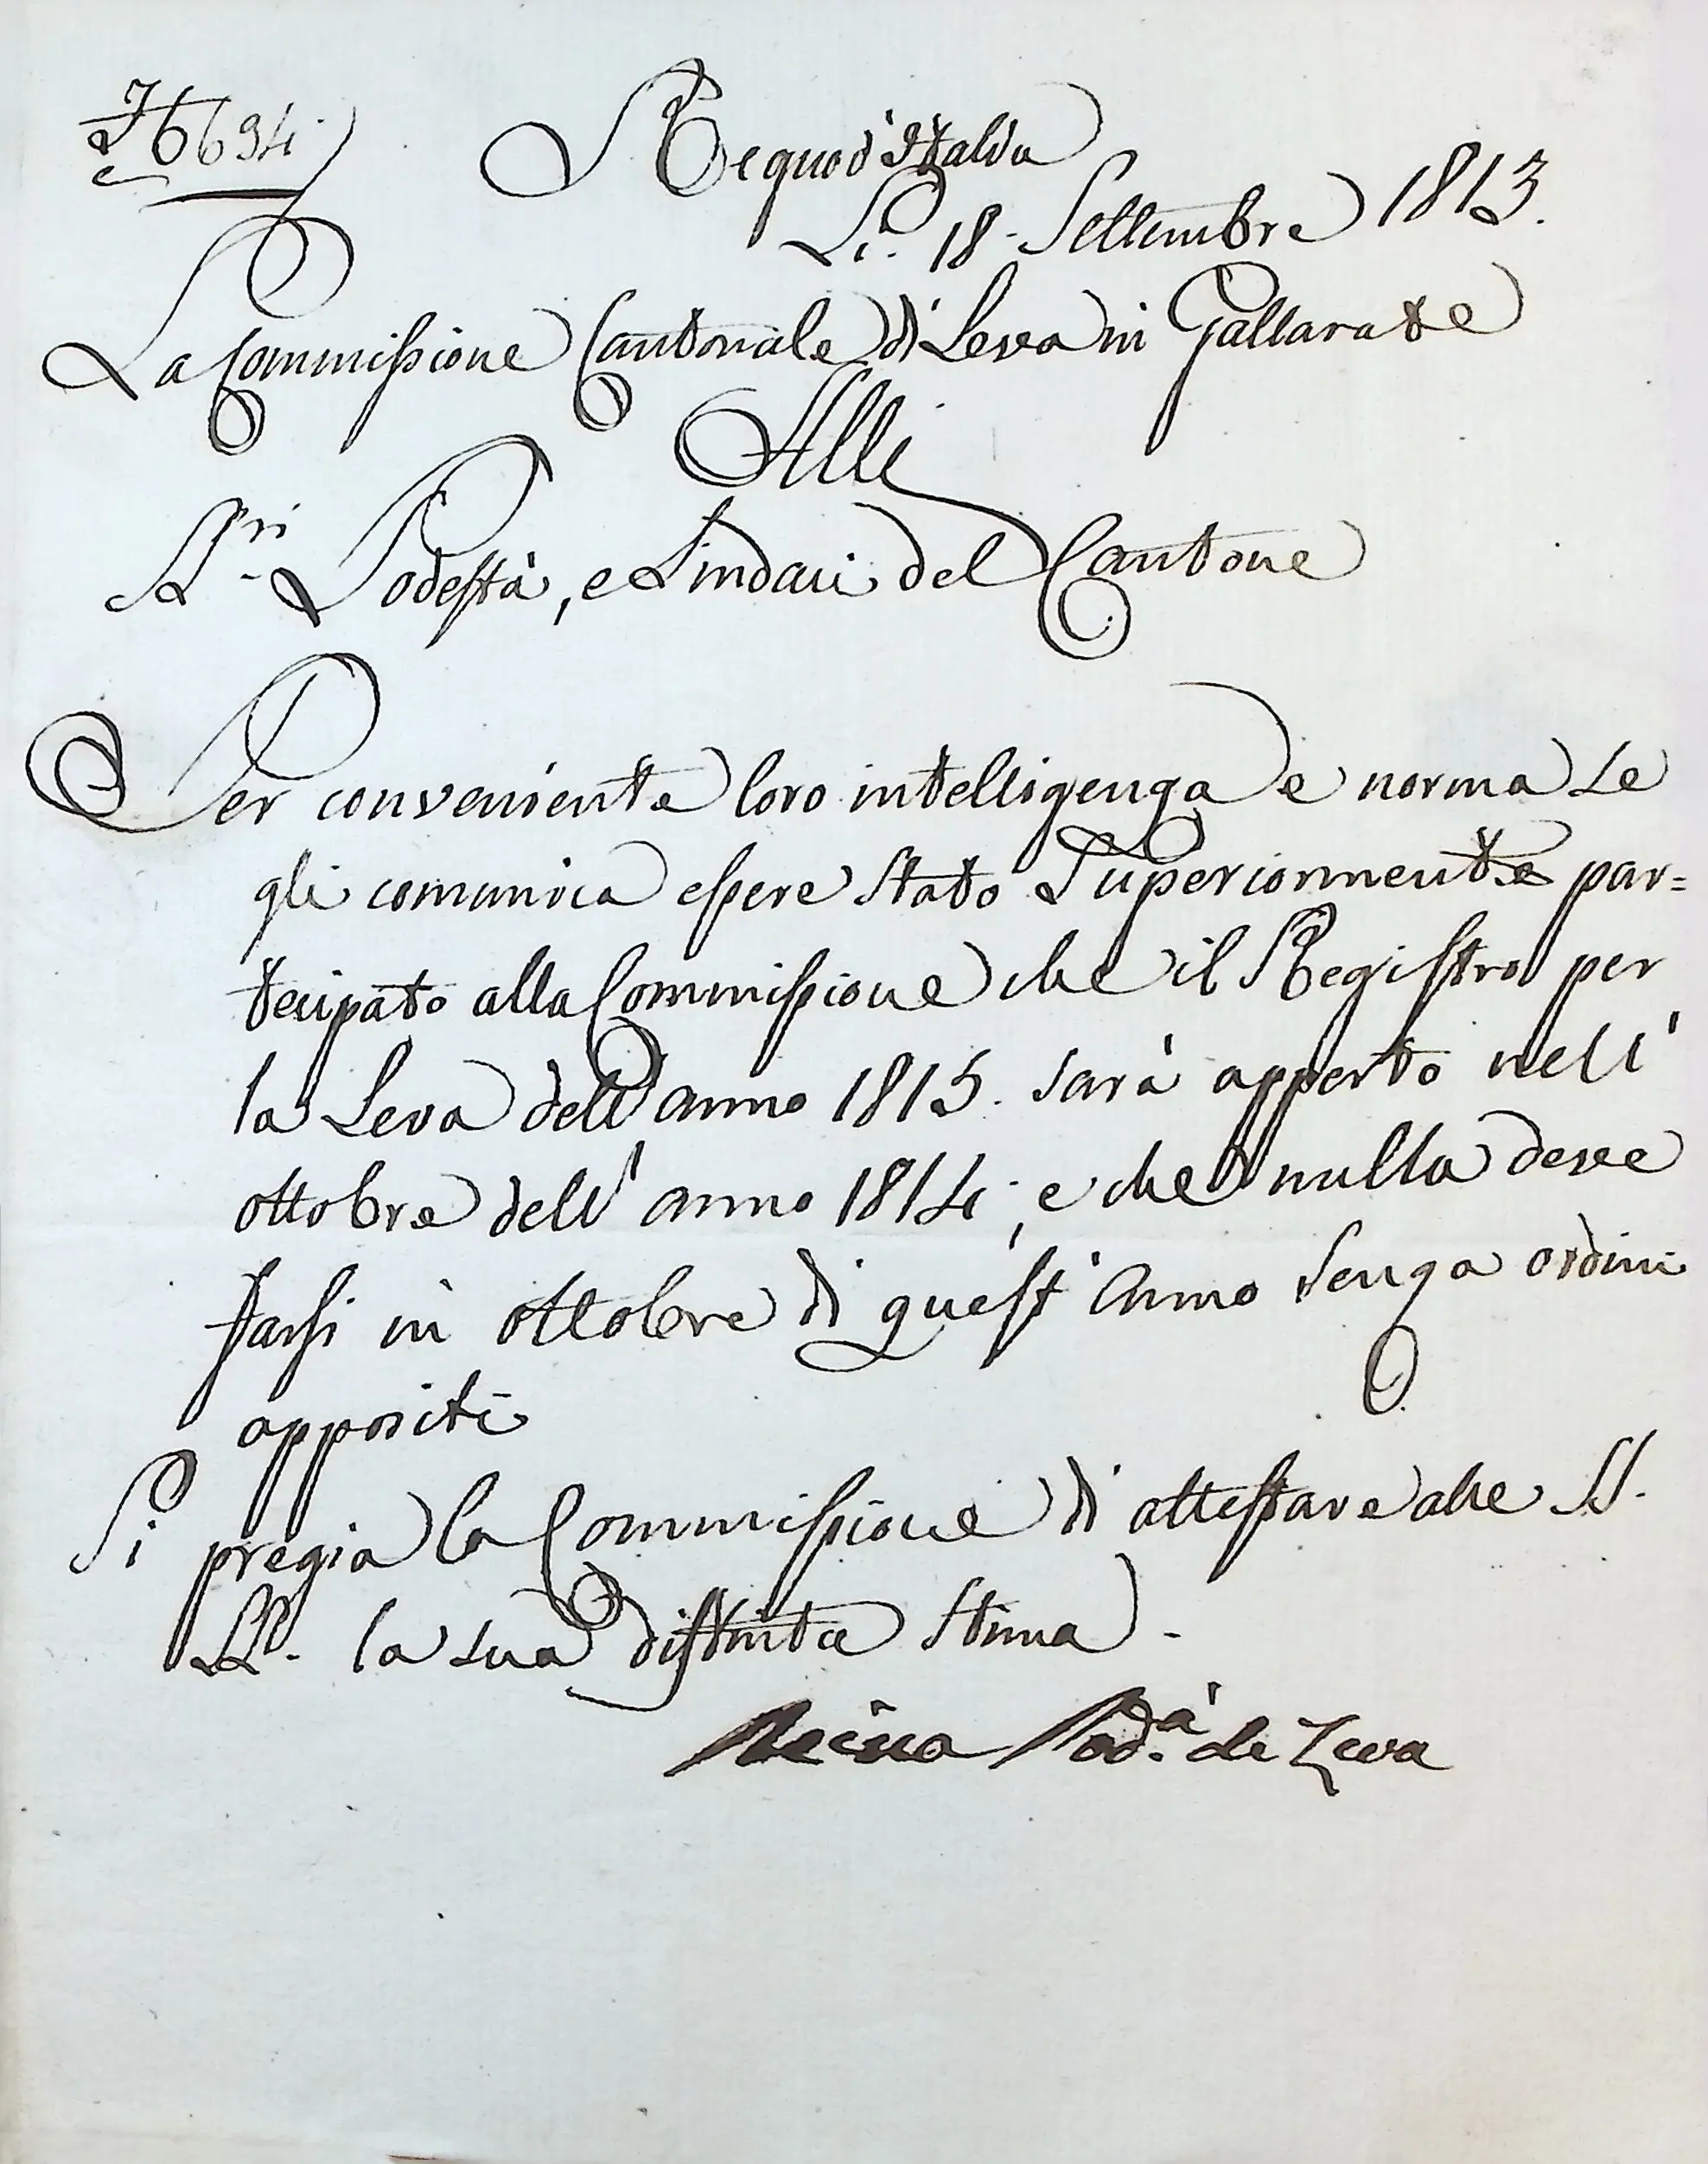 6694
Regno d'Italia
Li. 18. Settembre 1813.
La Commissione Cantonale di Leva in Gallarate
Alli
Sri. Podestà, e Sindaci del Cantone
Per conveniente loro intelligenza e norma se
gli comunica essere stato Superiormente par=
tecipato alla Commissione che il Registro per
la Leva dell'anno 1815. sarà apperto nell'
ottobre dell'anno 1814, e che nulla deve
farsi in ottobre di quest'anno senza ordini
appositi
Si pregia la Commissione di attestare alle SS.
LL. la sua distinta stima.
Reina Pod.à di Leva